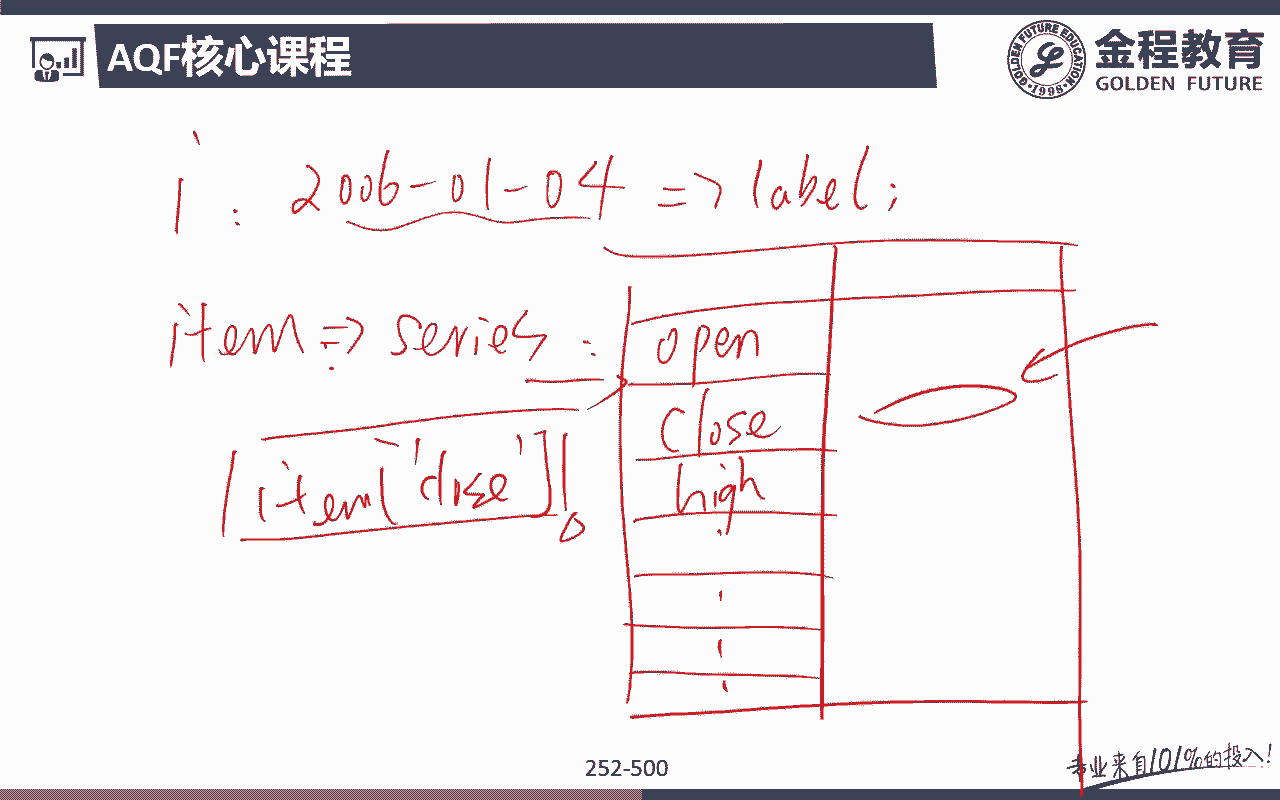 AQF核心课程
GOLDEN FUTURE EDUCATION
·1998·
金程教育
GOLDEN FUTURE
i : 2006-01-04 => label;
item => series :
open
close
high
item['close']
252-500
专业来自101%的投入!